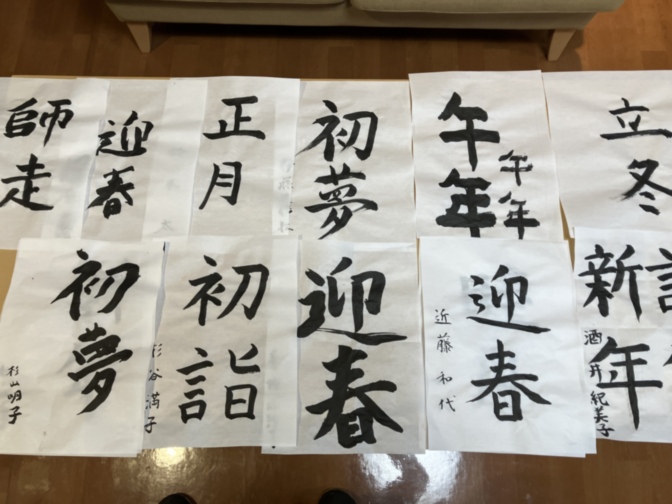 師走
迎春
正月
初夢
午年
午年
立冬
初夢
杉山明子
初詣
杉谷満子
迎春
迎春
近藤和代
新年
酒井紀美子